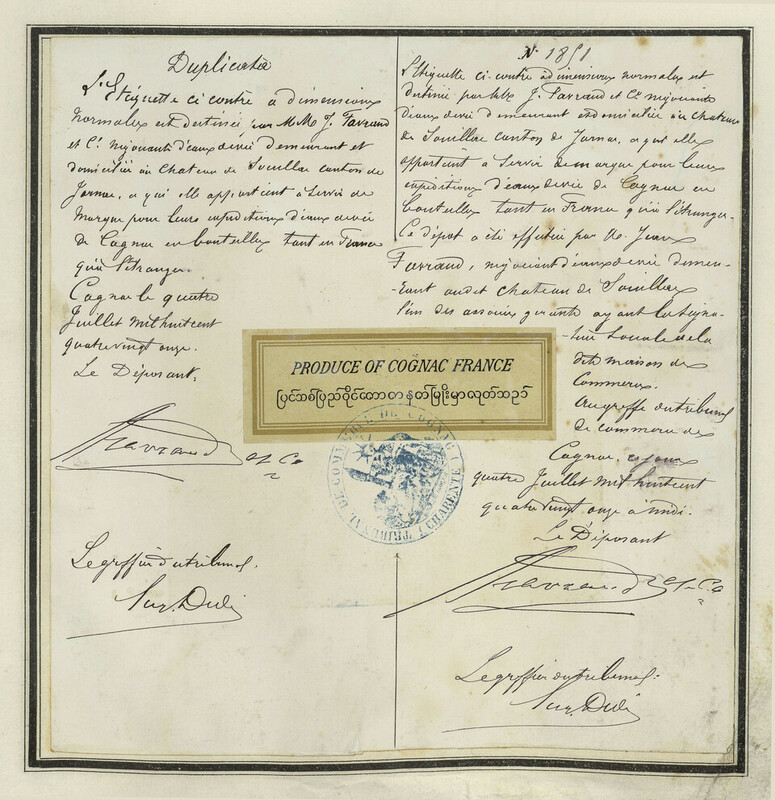 Duplicata
L'Etiquette ci contre a dimensions
normales est destinée, par M M J. Farraud
et Cie négociants d'eaux de vie demeurant et
domiciliés au Chateau de Souillac canton de
Jarnac, a qui elle appartient a servir de
marque pour leurs expéditions d'eaux de vie
de Cognac en bouteilles tant en France
qu'à l'étranger.
Cognac le quatre
Juillet mil huit cent
quatre vingt onze.
Le Déposant,
et Co
Le greffier du tribunal.
No 1851
L'Etiquette ci-contre a dimensions normales est
destinée par MM. J. Farraud et Cie négociants
d'eaux de vie demeurant et domiciliés au chateau
de Souillac canton de Jarnac, a qui elle
appartient a servir de marque pour leurs
expéditions d'eaux de vie de Cognac en
bouteilles tant en France qu'à l'étranger.
Ce dépot a été effectué par M. Jean
Farraud, négociant d'eaux de vie demeu-
rant au dit chateau de Souillac
l'un des associés gérants ayant la signa-
ture sociale de la
dite maison de
Commerce.
Au greffe du tribunal
de commerce de
Cognac, ce jour
quatre Juillet mil huit cent
quatre vingt onze à midi.
Le Déposant
et Co
Le greffier du tribunal.
PRODUCE OF COGNAC FRANCE
ပြင်သစ်ပြည်ဝိုင်ဏာတနတ်မြို့မှာလုတ်သည်
TRIBUNAL DE COMMERCE DE COGNAC
CHARENTE